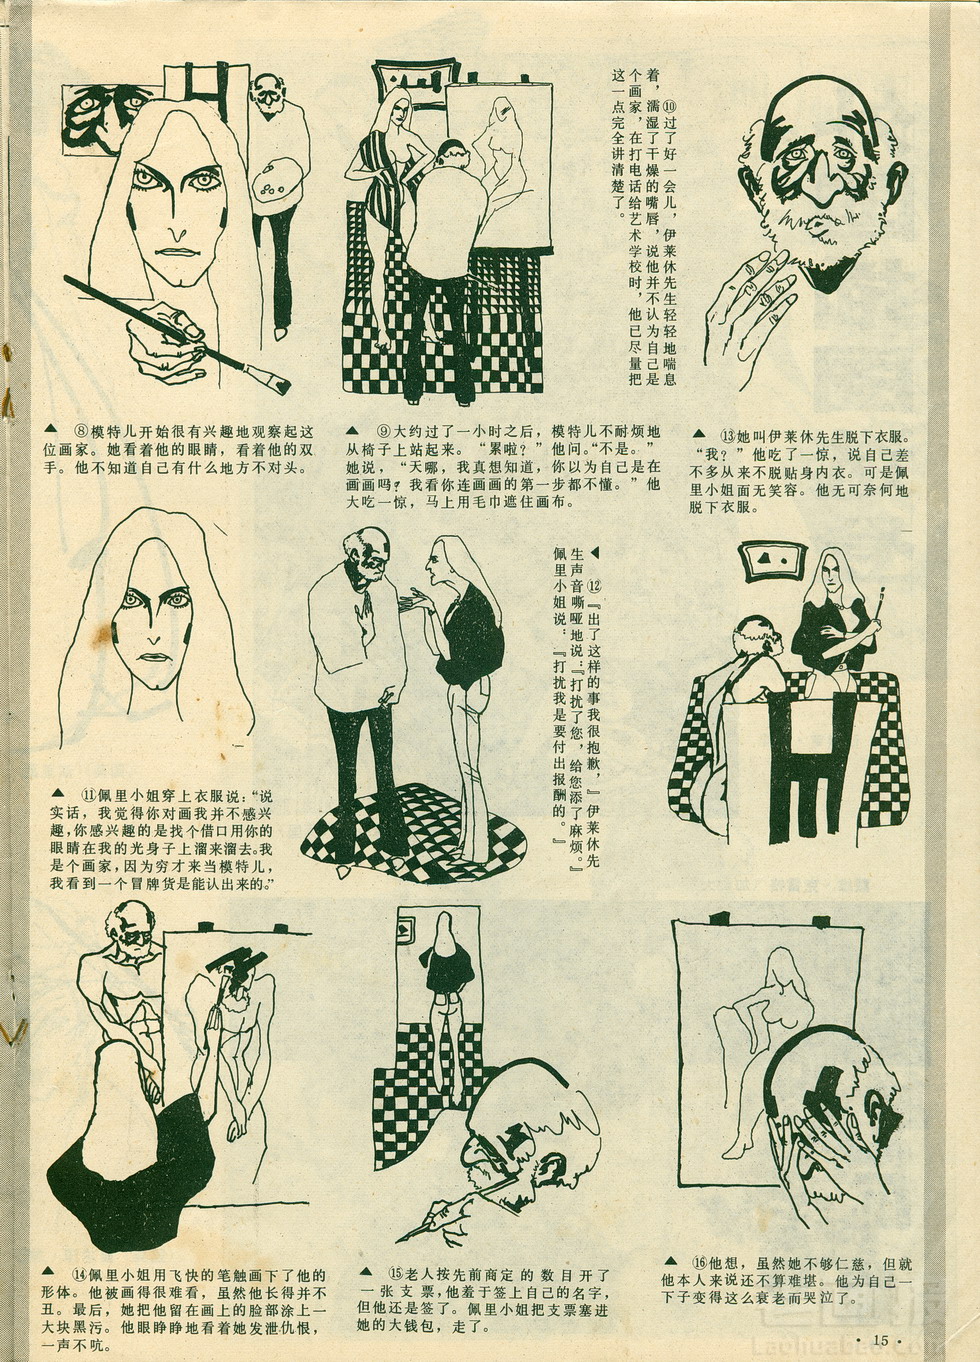 ▲ ⑧模特儿开始很有兴趣地观察起这
位画家。她看着他的眼睛，看着他的双
手。他不知道自己有什么地方不对头。
▲ ⑨大约过了一小时之后，模特儿不耐烦地
从椅子上站起来。“累啦？”他问。“不是。”
她说，“天哪，我真想知道，你以为自己是在
画画吗？我看你连画画的第一步都不懂。”他
大吃一惊，马上用毛巾遮住画布。
⑩过了好一会儿，伊莱休先生轻轻地喘息
着，濡湿了干燥的嘴唇，说他并不认为自己是
个画家，在打电话给艺术学校时，他已尽量把
这一点完全讲清楚了。
▲ ⑪佩里小姐穿上衣服说：“说
实话，我觉得你对画我并不感兴
趣，你感兴趣的是找个借口用你的
眼睛在我的光身子上溜来溜去。我
是个画家，因为穷才来当模特儿，
我看到一个冒牌货是能认出来的。”
◀ ⑫『出了这样的事我很抱歉，』伊莱休先
生声音嘶哑地说：『打扰了您，给您添了麻烦。』
佩里小姐说：『打扰我是要付出报酬的。』
▲ ⑬她叫伊莱休先生脱下衣服。
“我？”他吃了一惊，说自己差
不多从来不脱贴身内衣。可是佩
里小姐面无笑容。他无可奈何地
脱下衣服。
▲ ⑭佩里小姐用飞快的笔触画下了他的
形体。他被画得很难看，虽然他长得并不
丑。最后，她把他留在画上的脸部涂上一
大块黑污。他眼睁睁地看着她发泄仇恨，
一声不吭。
▲ ⑮老人按先前商定的数目开了
一张支票，他羞于签上自己的名字，
但他还是签了。佩里小姐把支票塞进
她的大钱包，走了。
▲ ⑯他想，虽然她不够仁慈，但就
他本人来说还不算难堪。他为自己一
下子变得这么衰老而哭泣了。
· 15 ·
laohuabao.com